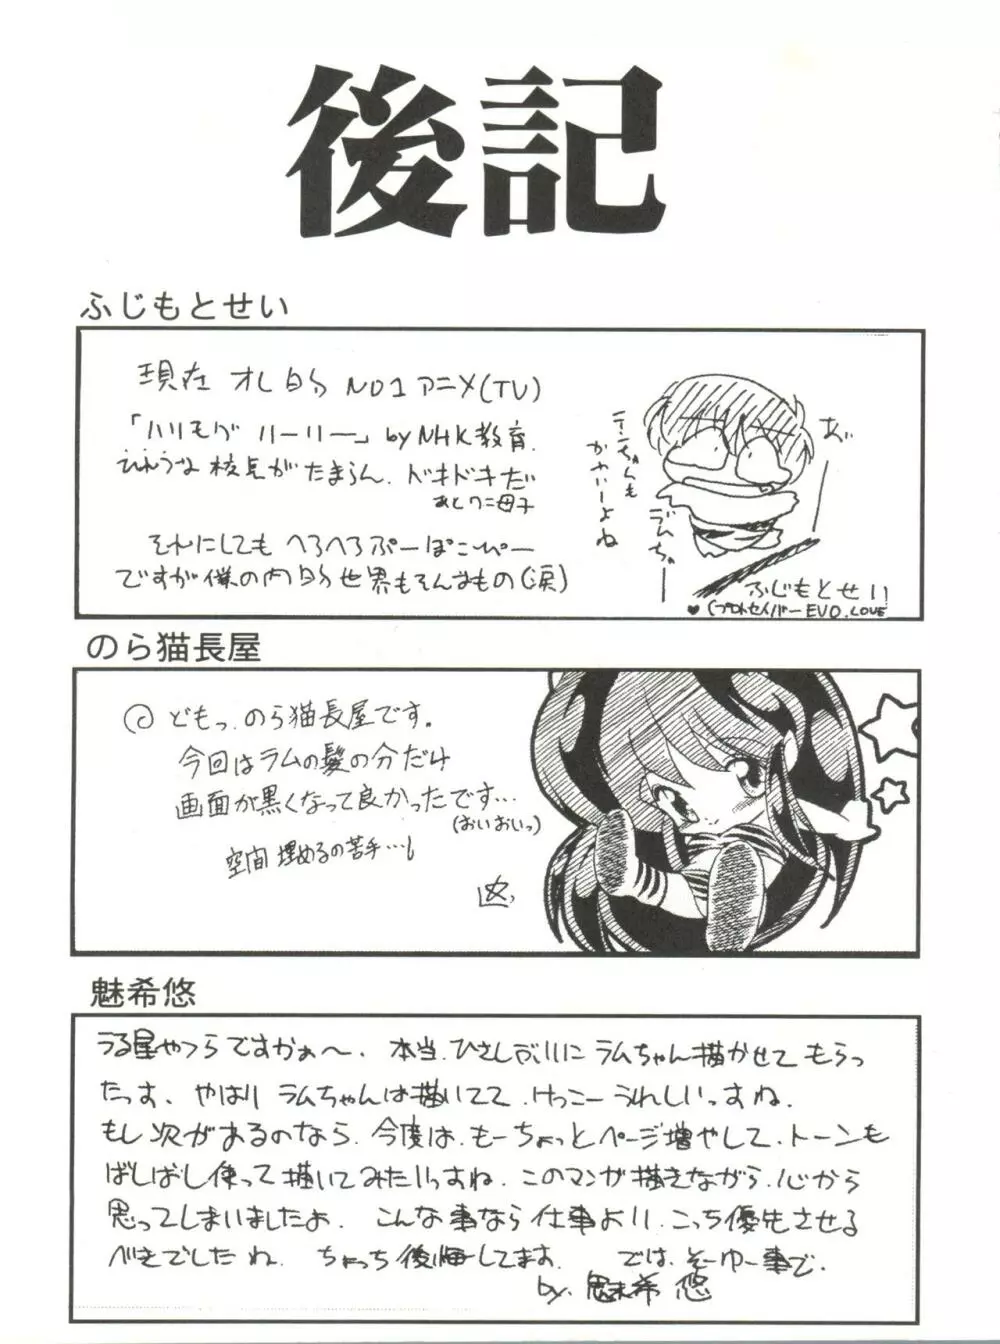 後記
ふじもとせい
現在 オレ的 NO1アニメ(TV)
「ハリモグ ハーリー」by NHK教育.
ひょうな校長がたまらん.ドキドキだ
あとワニ母子
それにしても へろへろぷーぽこぴー
ですが僕の内的世界もそんなもの(涙)
テンちゃんも
かわいーよね
ラムちゃーー
あ゛ー
ふじもとせい
♥(プロトセイバーEVO.LOVE
のら猫長屋
どもっ.のら猫長屋です。
今回はラムの髪の分だけ
画面が黒くなって良かったです…
(おいおいっ)
空間埋めるの苦手…
魅希悠
うる星やつらですかぁ〜.本当.ひさしぶりに ラムちゃん描かせて もらっ
たっす. やはり ラムちゃんは描いてて.けっこーうれしいっすね.
もし次があるのなら.今度は.もーちょっとページ増やして.トーンも
ばしばし使って描いてみたいっすね.このマンガ描きながら.心から
思ってしまいましたよ. こんな事なら仕事より.こっち優先させる
べきでしたね. ちょっち後悔してます. では.そーゆー事で.
by.魅希 悠